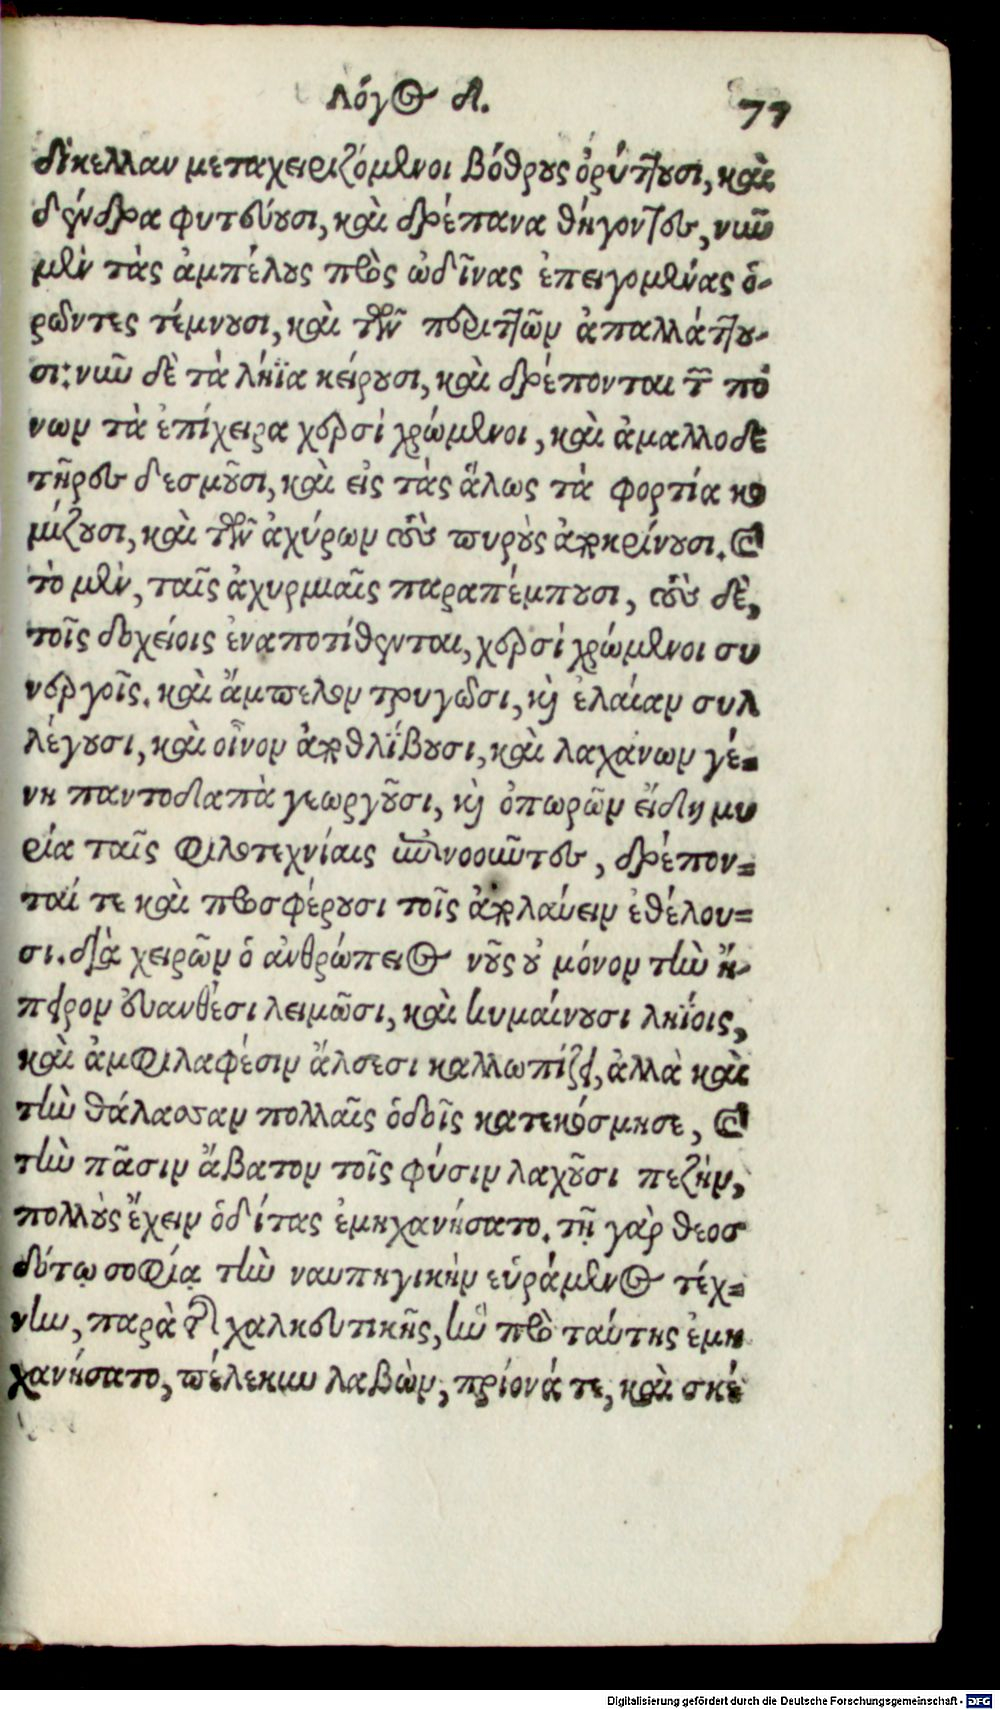 Λόγος δ. 77
δίκελλαν μεταχειριζόμενοι βόθρους ὀρύττουσι, καὶ
δένδρα φυτεύουσι, καὶ δρέπανα θήγοντες, νῦν
μὲν τὰς ἀμπέλους πρὸς ὠδῖνας ἐπειγομένας ὁ-
ρῶντες τέμνουσι, καὶ τῶν περιττῶν ἀπαλλάττου-
σι: νῦν δὲ τὰ λήϊα κείρουσι, καὶ δρέπονται τῶν πό
νων τὰ ἐπίχειρα χερσὶ χρώμενοι, καὶ ἀμαλλοδε
τῆρες δεσμοῦσι, καὶ εἰς τὰς ἅλως τὰ φορτία κο
μίζουσι, καὶ τῶν ἀχύρων τοὺς πυροὺς ἀποκρίνουσι. καὶ
τὸ μὲν, ταῖς ἀχυρμιαῖς παραπέμπουσι, τοὺς δὲ,
τοῖς δοχείοις ἐναποτίθενται, χερσὶ χρώμενοι συ
νεργοῖς. καὶ ἄμπελον τρυγῶσι, καὶ ἐλαίαν συλ
λέγουσι, καὶ οἶνον ἀποθλίβουσι, καὶ λαχάνων γέ-
νη παντοδαπὰ γεωργοῦσι, καὶ ὀπωρῶν εἴδη μυ
ρία ταῖς φιλοτεχνίαις ἐπινοοῦντες, δρέπον-
ταί τε καὶ προσφέρουσι τοῖς ἀπολαύειν ἐθέλου-
σι. διὰ χειρῶν ὁ ἀνθρώπειος νοῦς οὐ μόνον τὴν ἤ-
πειρον εὐανθέσι λειμῶσι, καὶ κυμαίνουσι ληΐοις,
καὶ ἀμφιλαφέσιν ἄλσεσι καλλωπίζει, ἀλλὰ καὶ
τὴν θάλασσαν πολλαῖς ὁδοῖς κατεκόσμησε, καὶ
τὴν πᾶσιν ἄβατον τοῖς φύσιν λαχοῦσι πεζὴν,
πολλοὺς ἔχειν ὁδίτας ἐμηχανήσατο. τῇ γὰρ θεοσ
δότῳ σοφίᾳ τὴν ναυπηγικὴν εὑράμενος τέχ-
νην, παρὰ τῆς χαλκευτικῆς, ἣν πρὸ ταύτης ἐμη
χανήσατο, πέλεκυν λαβὼν, πρίονά τε, καὶ σκέ
Digitalisierung gefördert durch die Deutsche Forschungsgemeinschaft - DFG